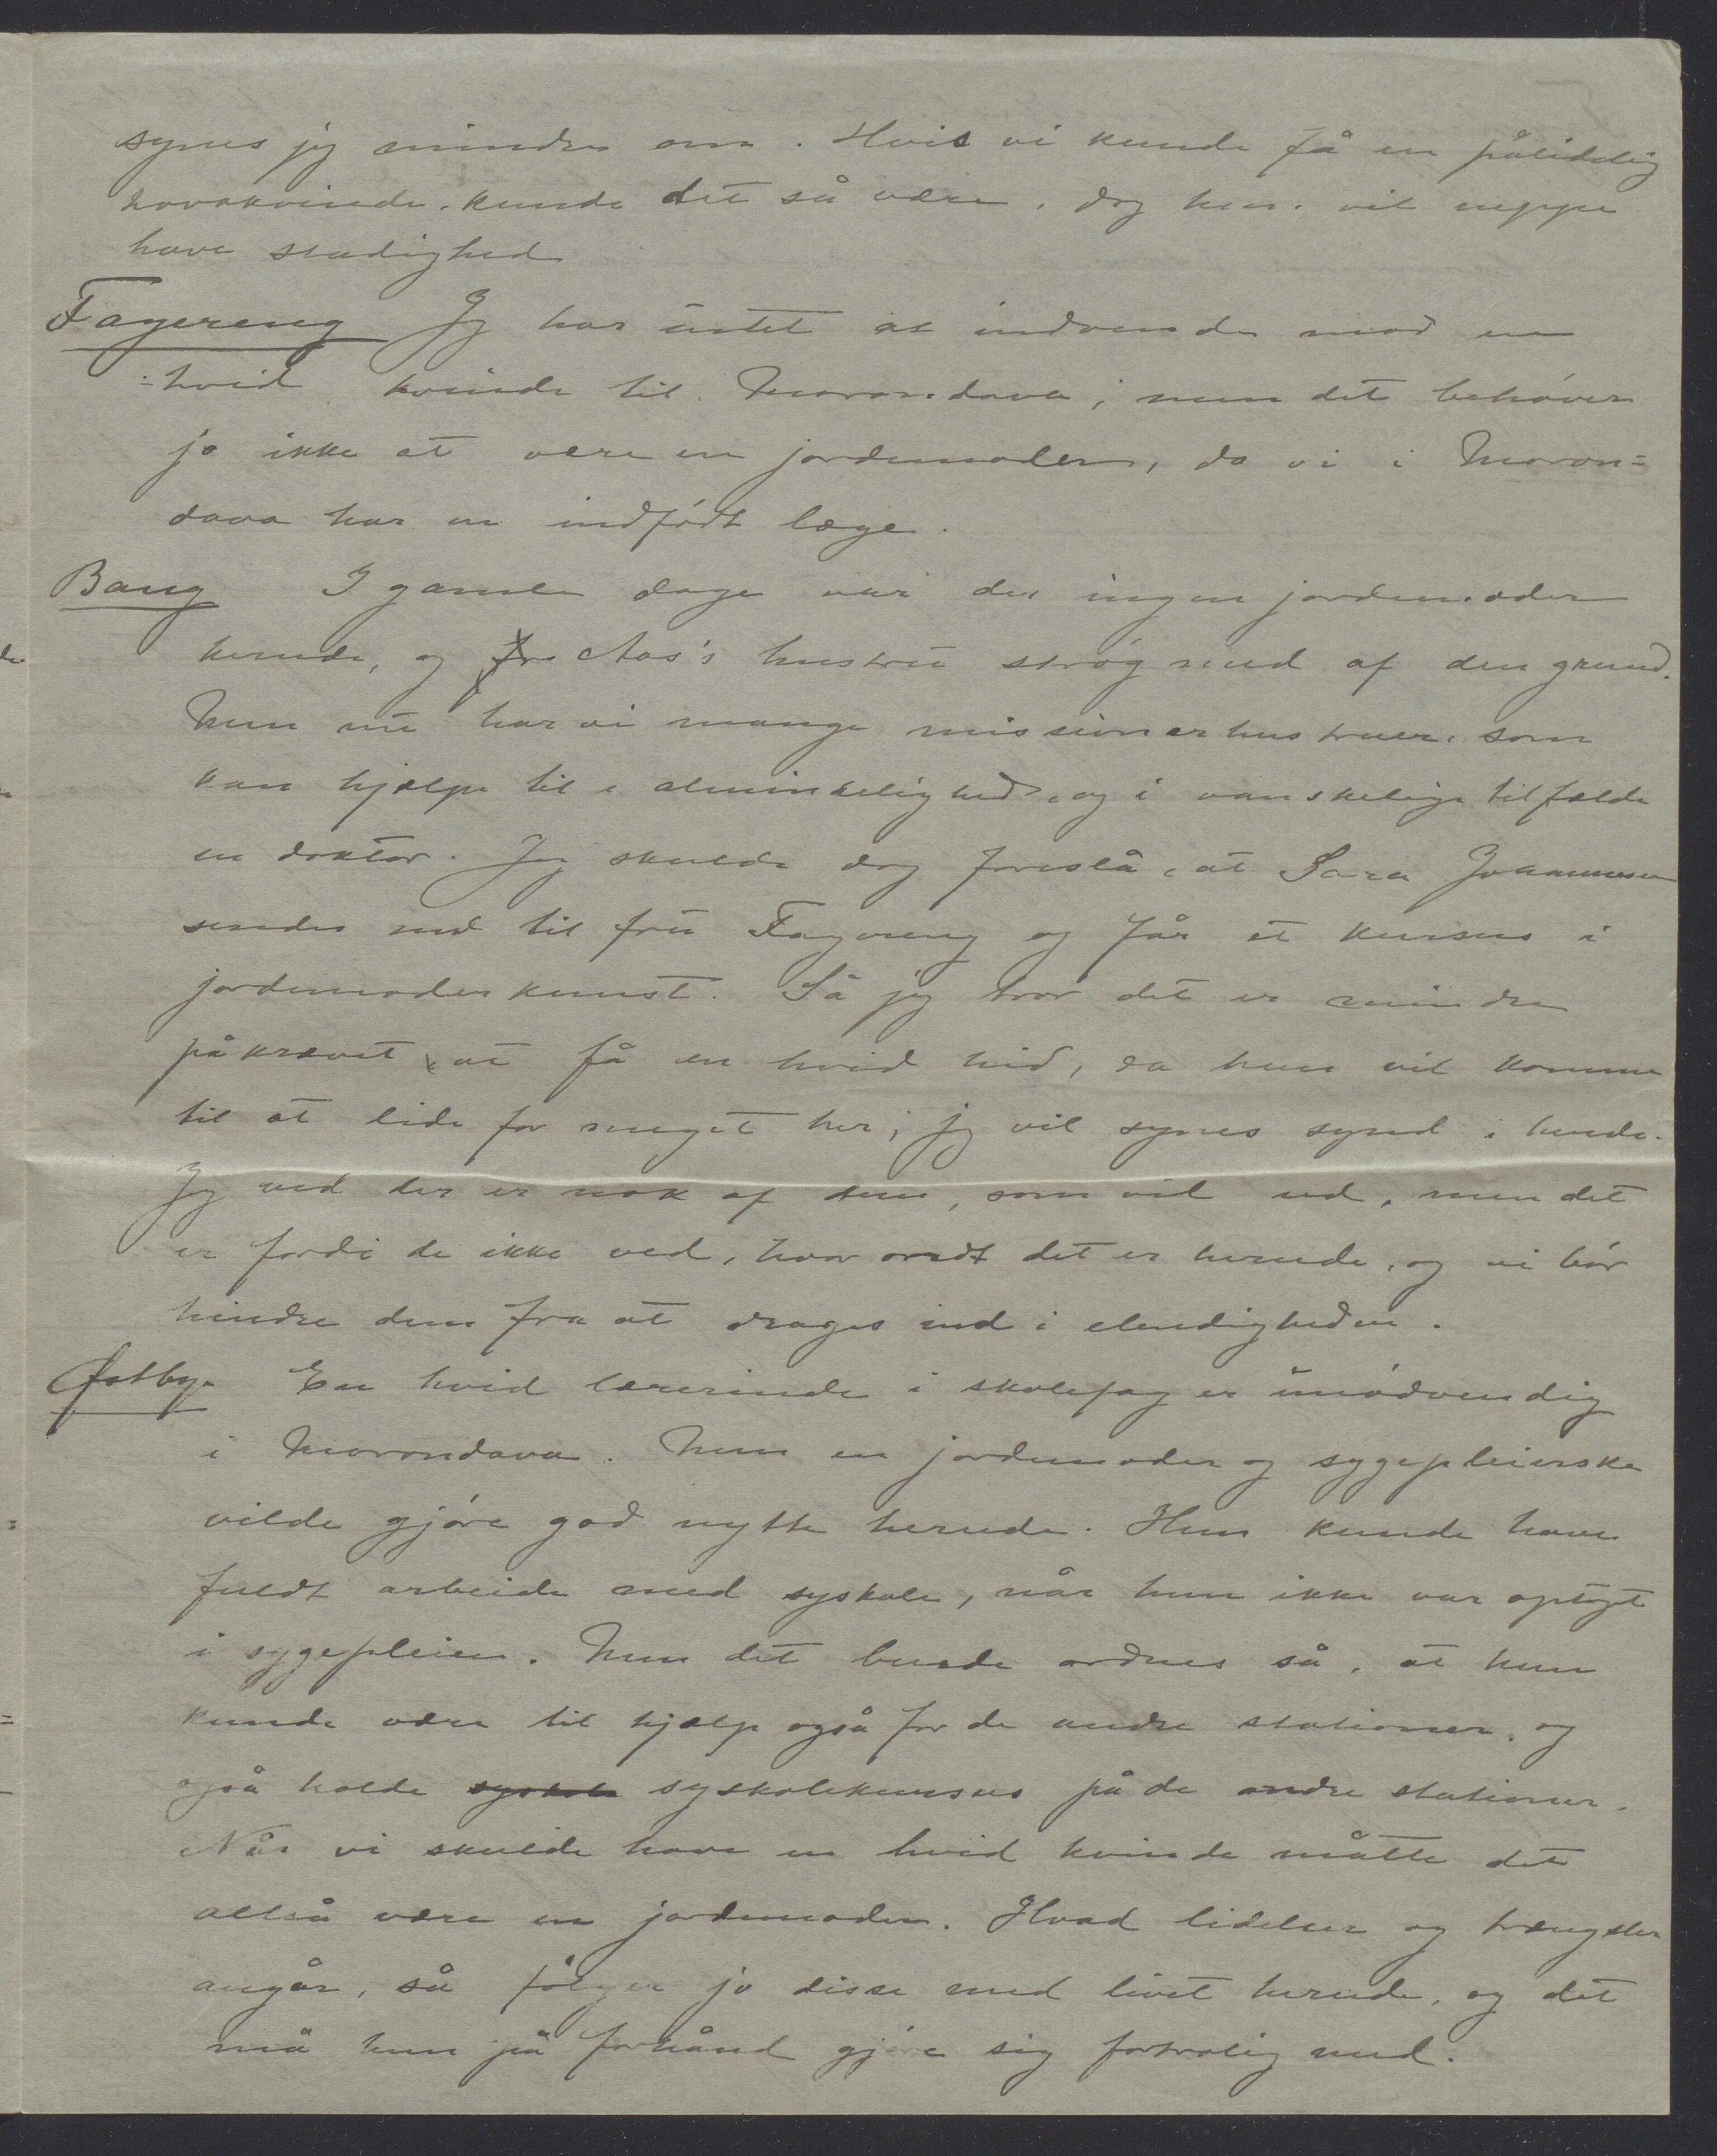 synes jeg mindre om. Hvis vi kunde få en pålidelig
hovakvinde, kunde det så være, dog hun vil neppe
have stadighed
Fagereng Jeg har intet at indvende mod en
hvid kvinde til Morondava; men det behøver
jo ikke at være en jordemoder, da vi i Moron=
dava har en indfødt læge.
Bang I gamle dage var der ingen jordemoder
herude, og Aas's hustru strøg med af den grund.
Men nu har vi mange missionærhustruer, som
kan hjælpe til i almindelighed, og i vanskelige tilfælde
en doktor. Jeg skulde dog foreslå, at Sara Johannesen
sendes ned til fru Fagereng og får et kursus i
jordemoderkunst. Så jeg tror det er mindre
påkrævet at få en hvid hid, da hun vil komme
til at lide for meget her; jeg vil synes synd i hende.
Jeg ved der er nok af dem, som vil ud, men det
er fordi de ikke ved, hvor ondt det er herude, og vi bør
hindre dem fra at drages ind i elendigheden.
Østby. En hvid lærerinde i skolefag er unødvendig
i Morondava. Men en jordemoder og sygepleierske
vilde gjøre god nytte herude. Hun kunde have
fuldt arbeide med syskole, når hun ikke var optaget
i sygepleien. Men det burde ordnes så, at hun
kunde være til hjælp også for de andre stationer, og
også holde syskole syskolekursus på de andre stationer.
Når vi skulde have en hvid kvinde måtte det
altså være en jordemoder. Hvad lidelser og trængsler
angår, så følger jo disse med livet herude, og det
må hun på forhånd gjøre sig fortrolig med.